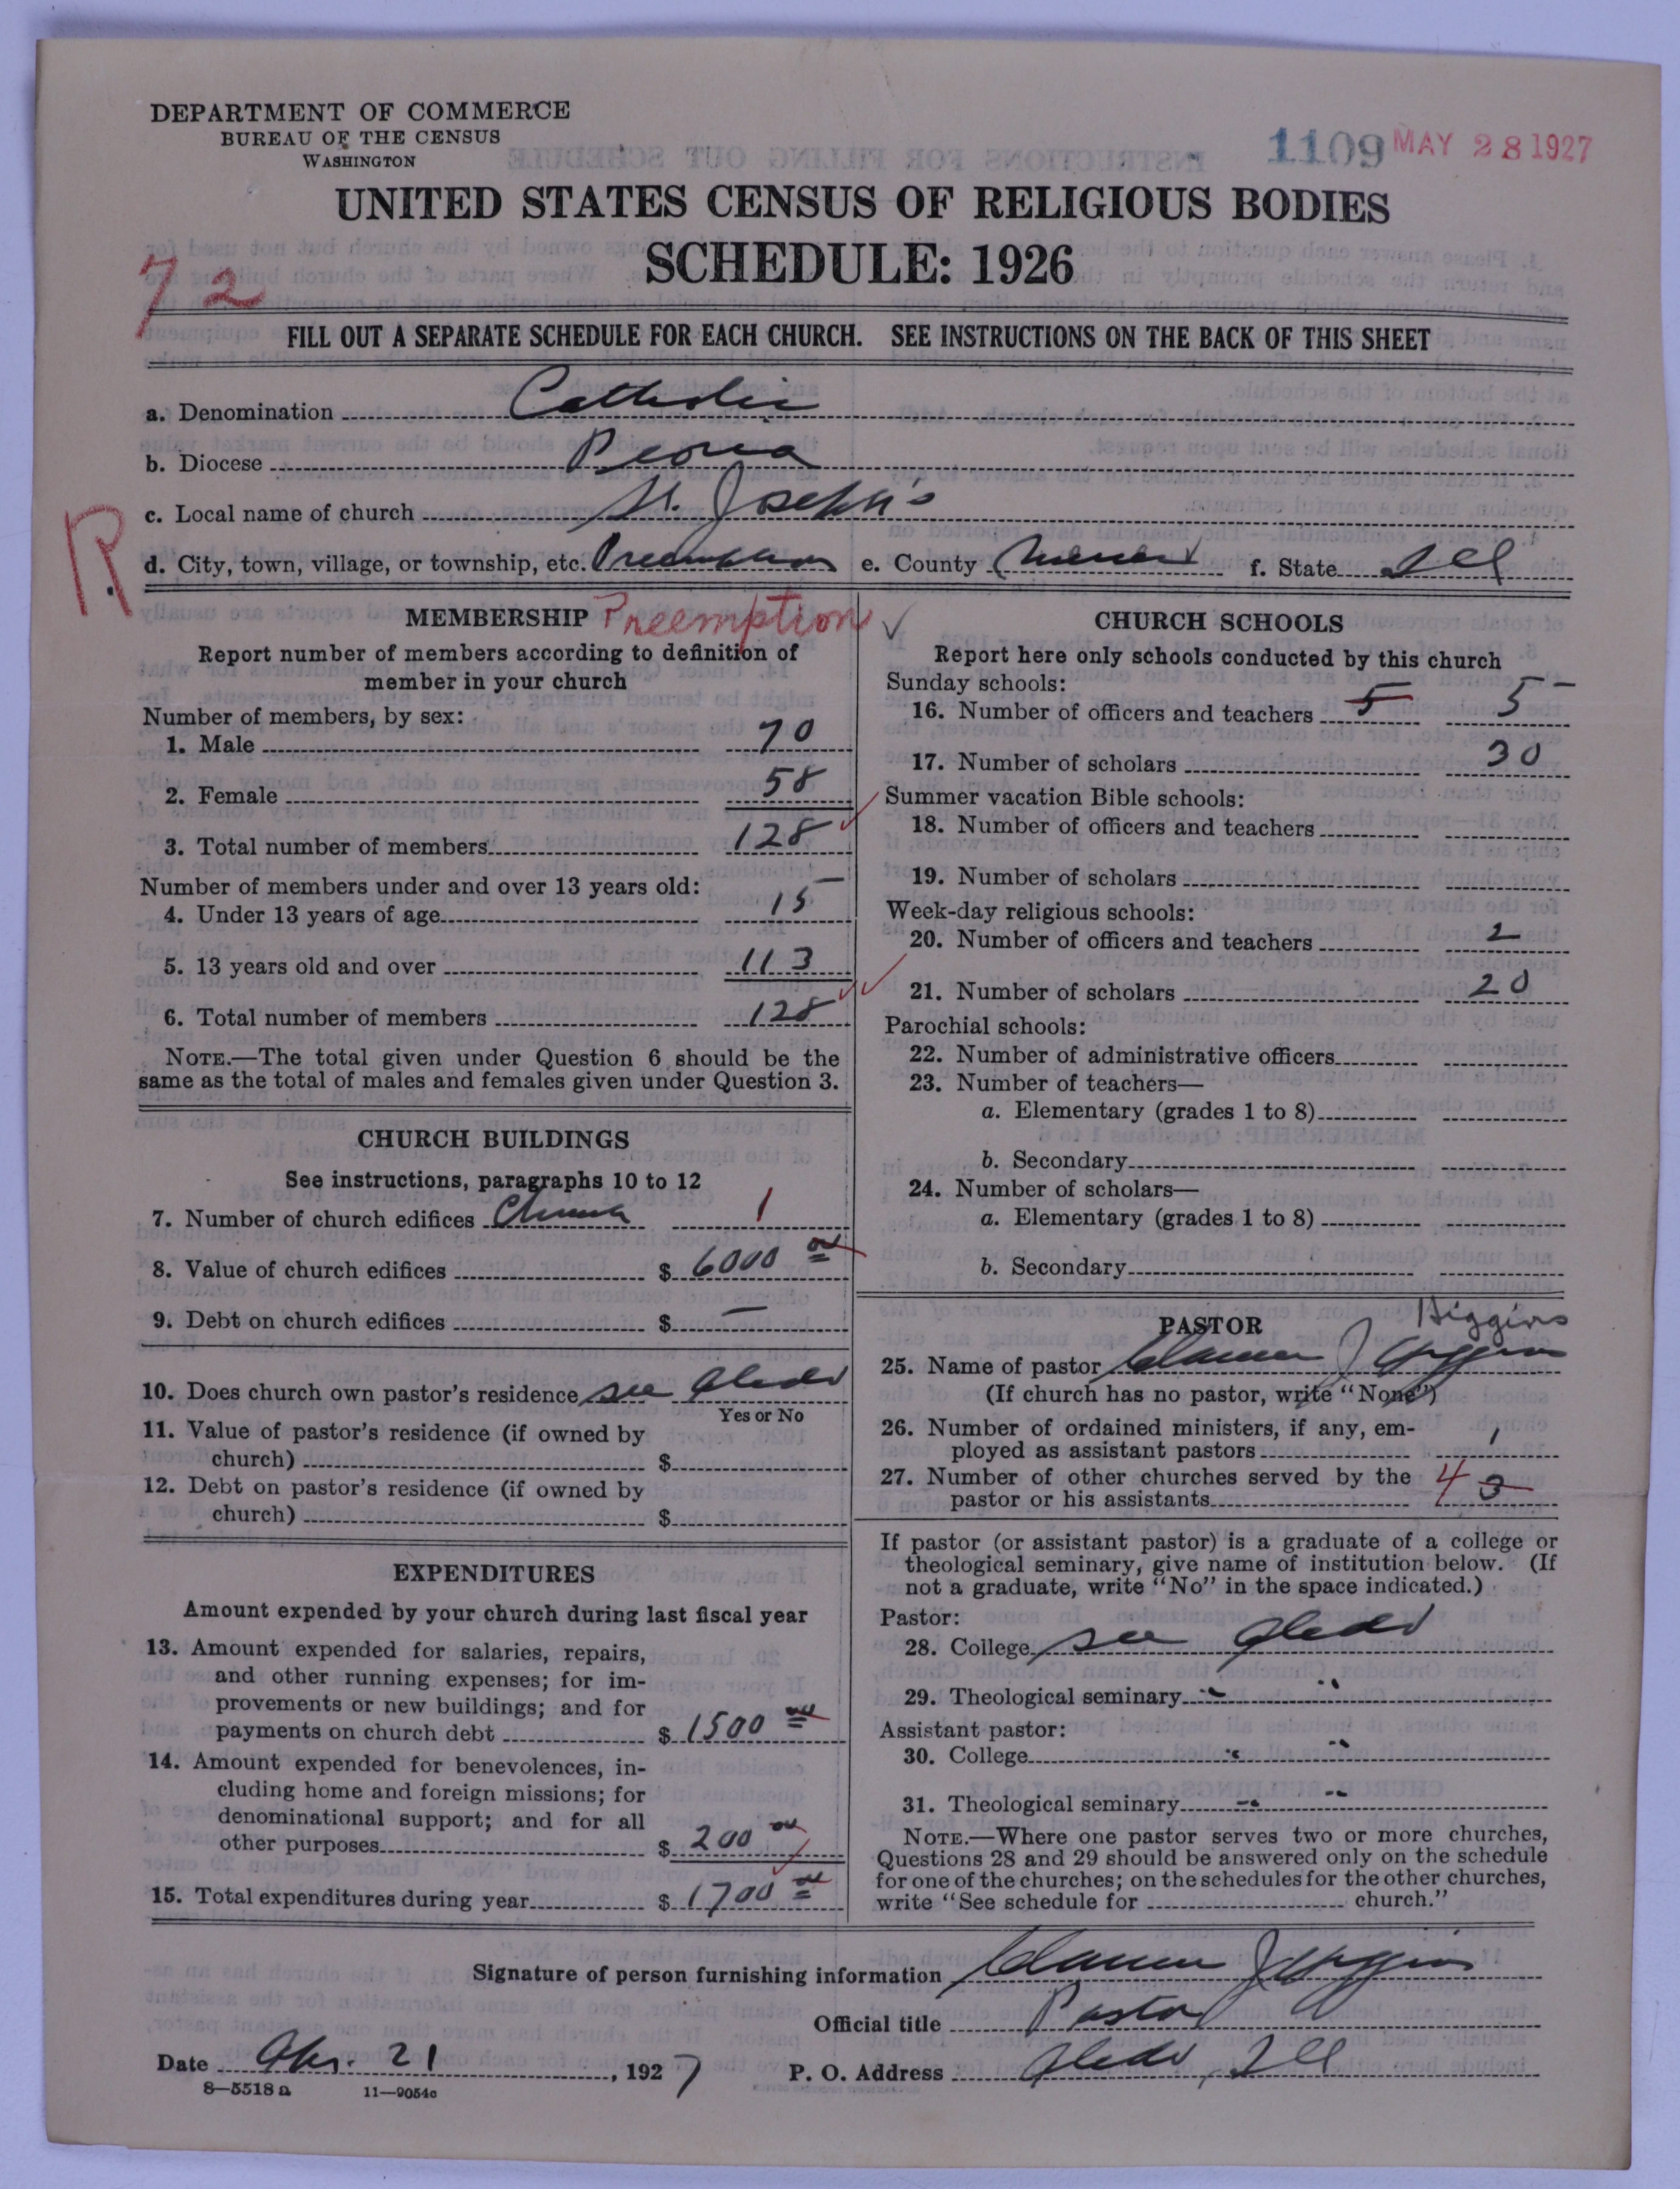 DEPARTMENT OF COMMERCE
BUREAU OF THE CENSUS
WASHINGTON
1109 MAY 28 1927
UNITED STATES CENSUS OF RELIGIOUS BODIES
SCHEDULE: 1926
72
FILL OUT A SEPARATE SCHEDULE FOR EACH CHURCH. SEE INSTRUCTIONS ON THE BACK OF THIS SHEET
a. Denomination Catholic
b. Diocese Peoria
R
c. Local name of church St. Joseph's
d. City, town, village, or township, etc. Preemption e. County Mercer f. State Ill
MEMBERSHIP Preemption ✓
Report number of members according to definition of
member in your church
Number of members, by sex:
1. Male 70
2. Female 58
3. Total number of members 128
Number of members under and over 13 years old:
4. Under 13 years of age 15
5. 13 years old and over 113
6. Total number of members 128
NOTE.—The total given under Question 6 should be the
same as the total of males and females given under Question 3.
CHURCH BUILDINGS
See instructions, paragraphs 10 to 12
7. Number of church edifices 1
8. Value of church edifices $ 6000
9. Debt on church edifices $ —
10. Does church own pastor's residence see Aledo
Yes or No
11. Value of pastor's residence (if owned by
church) $
12. Debt on pastor's residence (if owned by
church) $
EXPENDITURES
Amount expended by your church during last fiscal year
13. Amount expended for salaries, repairs,
and other running expenses; for im-
provements or new buildings; and for
payments on church debt $ 1500
14. Amount expended for benevolences, in-
cluding home and foreign missions; for
denominational support; and for all
other purposes $ 200
15. Total expenditures during year $ 1700
CHURCH SCHOOLS
Report here only schools conducted by this church
Sunday schools:
16. Number of officers and teachers 5 5
17. Number of scholars 30
Summer vacation Bible schools:
18. Number of officers and teachers
19. Number of scholars
Week-day religious schools:
20. Number of officers and teachers 2
21. Number of scholars 20
Parochial schools:
22. Number of administrative officers
23. Number of teachers—
a. Elementary (grades 1 to 8)
b. Secondary
24. Number of scholars—
a. Elementary (grades 1 to 8)
b. Secondary
PASTOR Higgins
25. Name of pastor J Higgins
(If church has no pastor, write "None")
26. Number of ordained ministers, if any, em-
ployed as assistant pastors 1
27. Number of other churches served by the
pastor or his assistants 4 3
If pastor (or assistant pastor) is a graduate of a college or
theological seminary, give name of institution below. (If
not a graduate, write "No" in the space indicated.)
Pastor:
28. College see Aledo
29. Theological seminary " "
Assistant pastor:
30. College " "
31. Theological seminary " "
NOTE.—Where one pastor serves two or more churches,
Questions 28 and 29 should be answered only on the schedule
for one of the churches; on the schedules for the other churches,
write "See schedule for church."
Signature of person furnishing information J Higgins
Official title Pastor
Date Apr. 21, 1927 P. O. Address Aledo, Ill
8—5518a 11—9054c